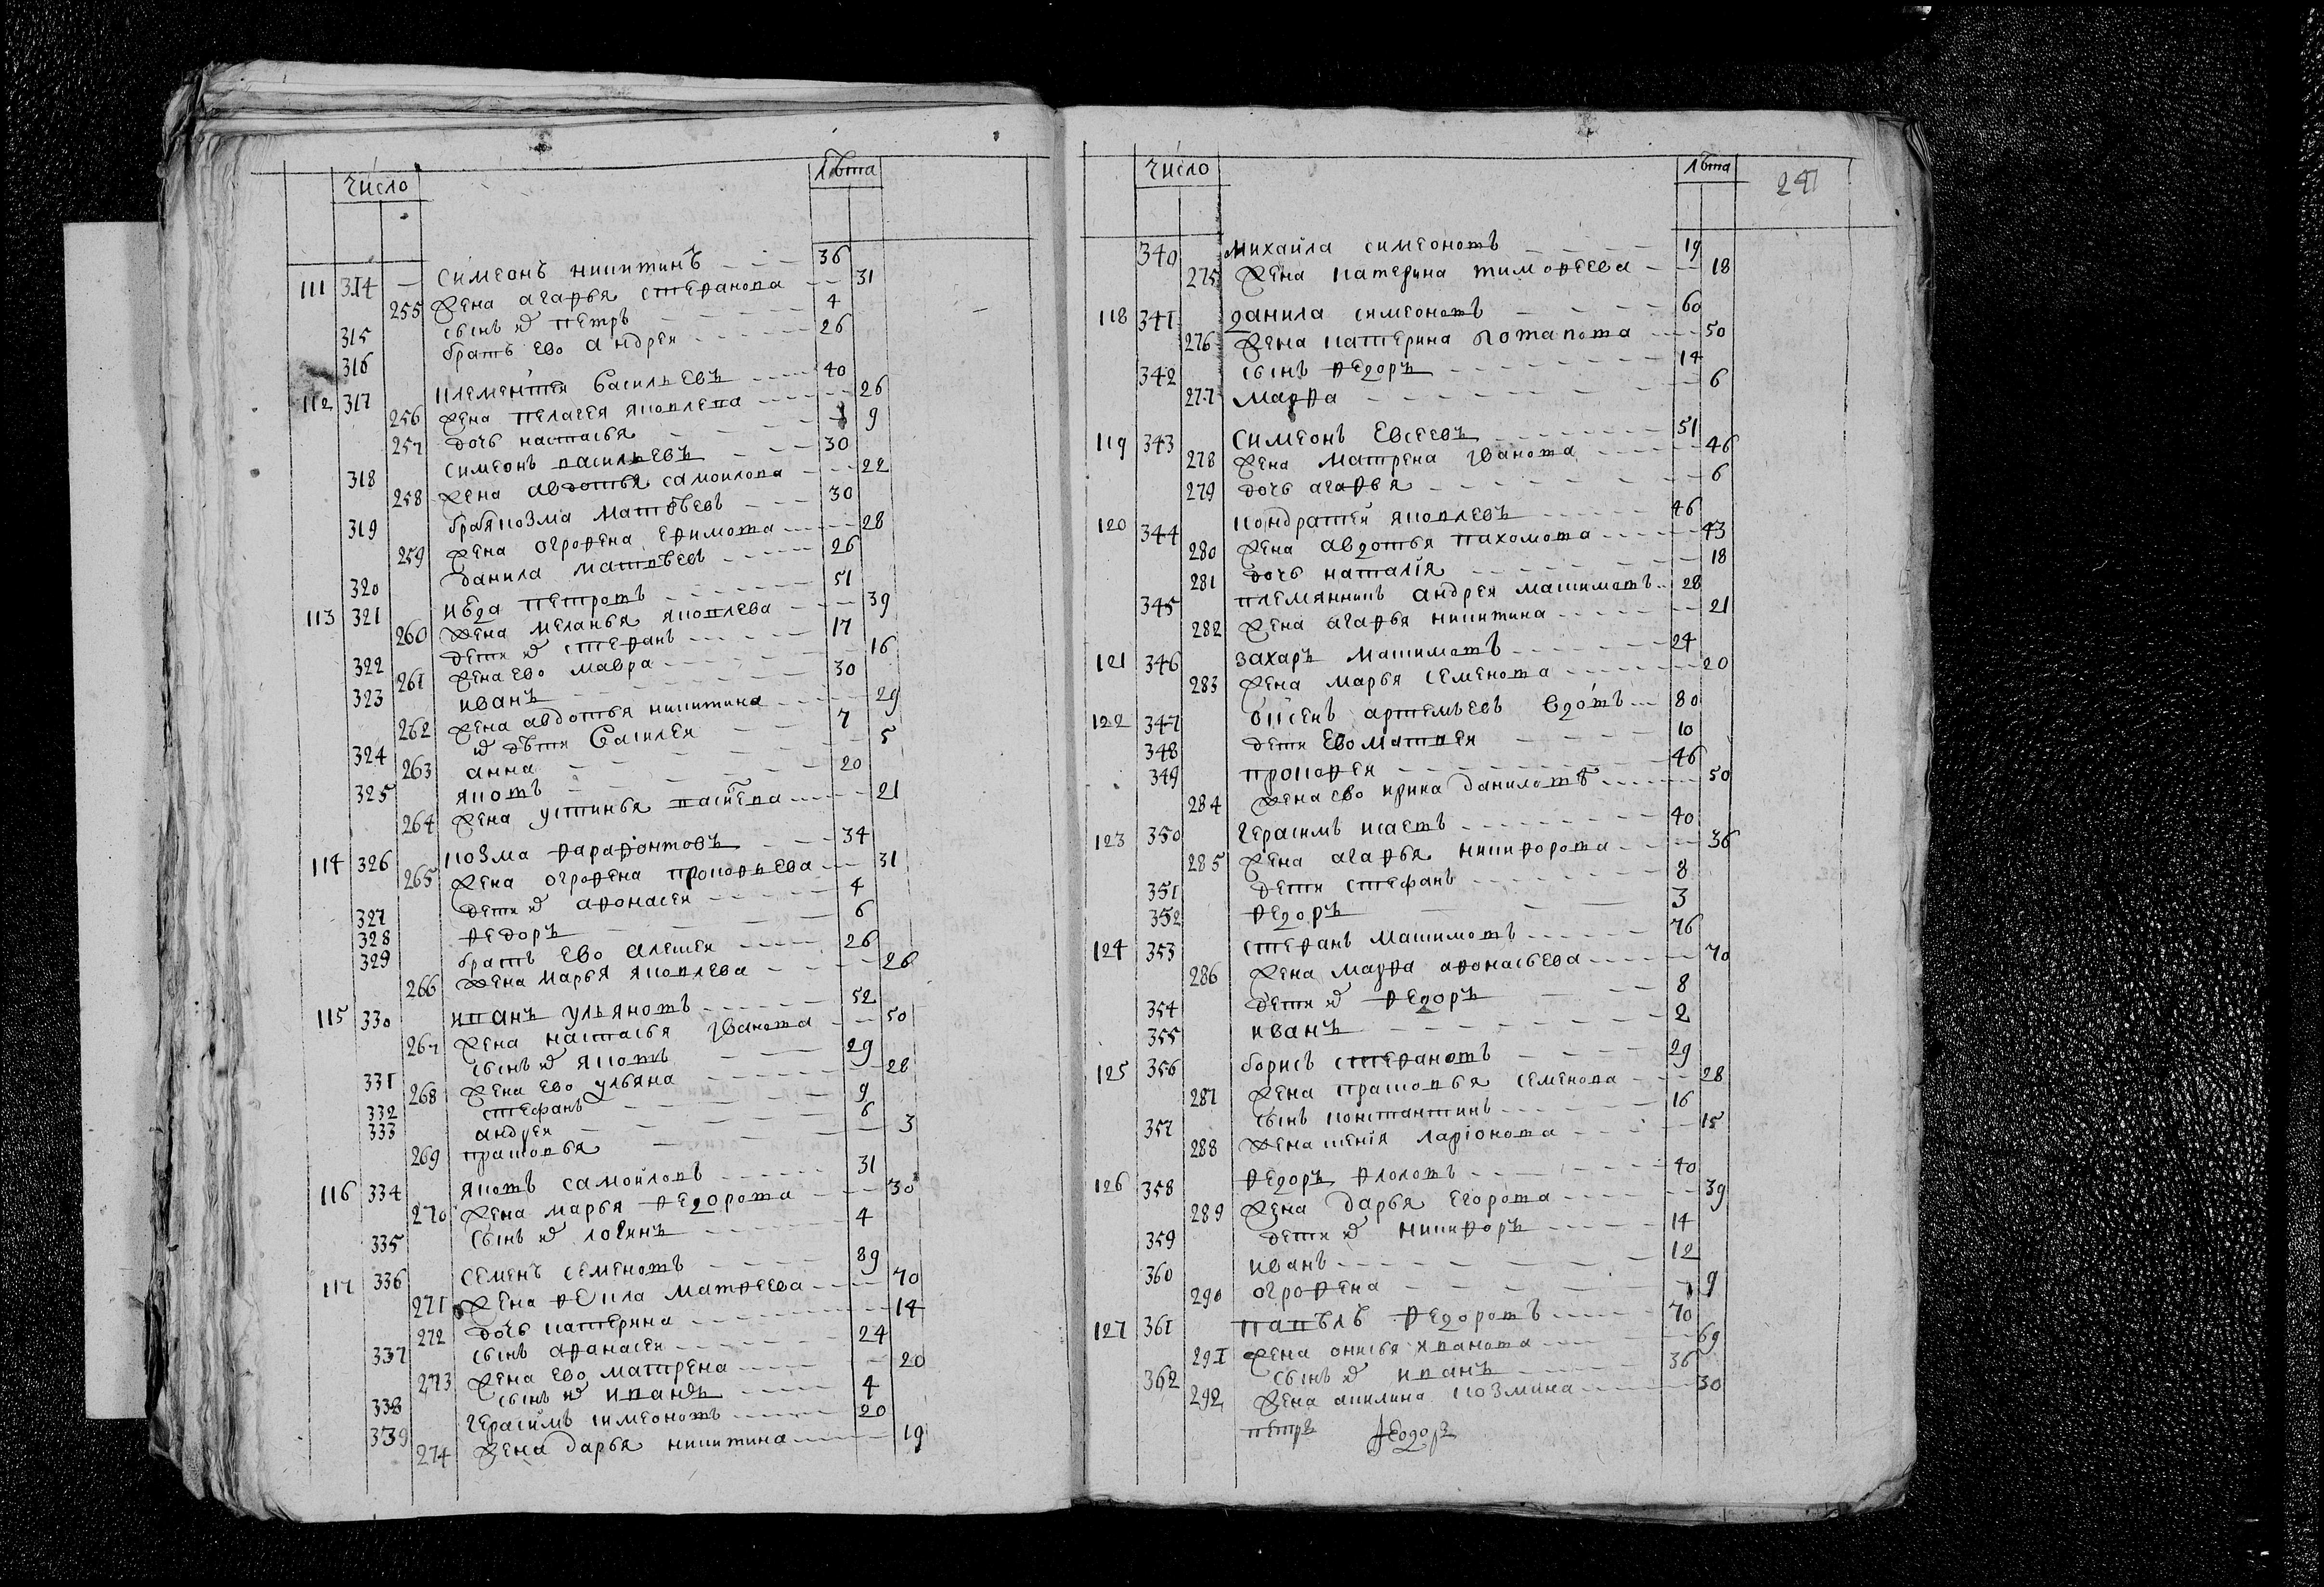 число лѣта
111 314 — симеонъ никитинъ 36
255 жена агафья стефанова 31
315 сынъ петръ 4
316 братъ ево андреи 26
112 317 клементеи васильевъ 40
256 жена пелагея яковлева 26
257 дочь настасья 9
318 симеонъ васильевъ 30
258 жена авдотья самоилова 22
319 козма матвѣевъ 30
259 жена огрофена ефимова 28
320 данила матвѣевъ 26
113 321 петровъ 51
260 жена меланья яковлева 39
322 дети стефанъ 17
261 жена ево мавра 16
323 иванъ 30
262 жена авдотья никитина 29
324 дѣти василеи 7
263 анна 5
325 яковъ 20
264 жена устинья 21
114 326 козма фарафонтовъ 34
265 жена огрофена прокофьева 31
327 дети афонасеи 4
328 федоръ 6
329 братъ ево алексеи 26
266 жена марья яковлева 26
115 330 иванъ ульяновъ 52
267 жена настасья иванова 50
331 сынъ яковъ 29
268 жена ево ульяна 28
332 стефанъ 9
333 андреи 6
269 прасковья 3
116 334 яковъ самоиловъ 31
270 жена марья федорова 30
335 сынъ логинъ 4
117 336 семенъ семеновъ 89
271 жена фекла матфеева 70
272 дочь катерина 14
337 сынъ афанасеи 24
273 жена ево матрена 20
338 сынъ иванъ 4
339 герасимъ симеоновъ 20
274 жена дарья никитина 19
число лѣта 241
340 михаила симеоновъ 19
275 жена катерина тимофеева 18
118 341 данила симеоновъ 60
276 жена катерина потапова 50
342 сынъ федоръ 14
277 марфа 6
119 343 симеонъ евсеевъ 51
278 жена матрена иванова 46
279 дочь агафья 6
120 344 кондратеи яковлевъ 46
280 жена авдотья пахомова 43
281 дочь наталія 18
345 племянникъ андреи максимовъ 28
282 жена агафья никитина 21
121 346 захаръ максимовъ 24
283 жена марья семенова 20
122 347 артемьевъ вдовъ 80
348 дети ево матвеи 10
349 прокофеи 46
284 жена ево ирина данилова 50
123 350 герасимъ исаевъ 40
285 жена агафья никифорова 36
351 дети стефанъ 8
352 федоръ 3
124 353 стефанъ максимовъ 76
286 жена марфа афонасьева 70
354 дети федоръ 8
355 иванъ 2
125 356 борисъ стефановъ 29
287 жена прасковья семенова 28
357 сынъ константинъ 16
288 жена ксенія ларіонова 15
126 358 федоръ фроловъ 40
289 жена дарья егорова 39
359 дети никифоръ 14
360 иванъ 12
290 огрофена 9
127 361 павѣлъ федоровъ 70
291 жена онисья иванова 69
362 сынъ иванъ 36
292 жена акилина козмина 30
петръ федоръ